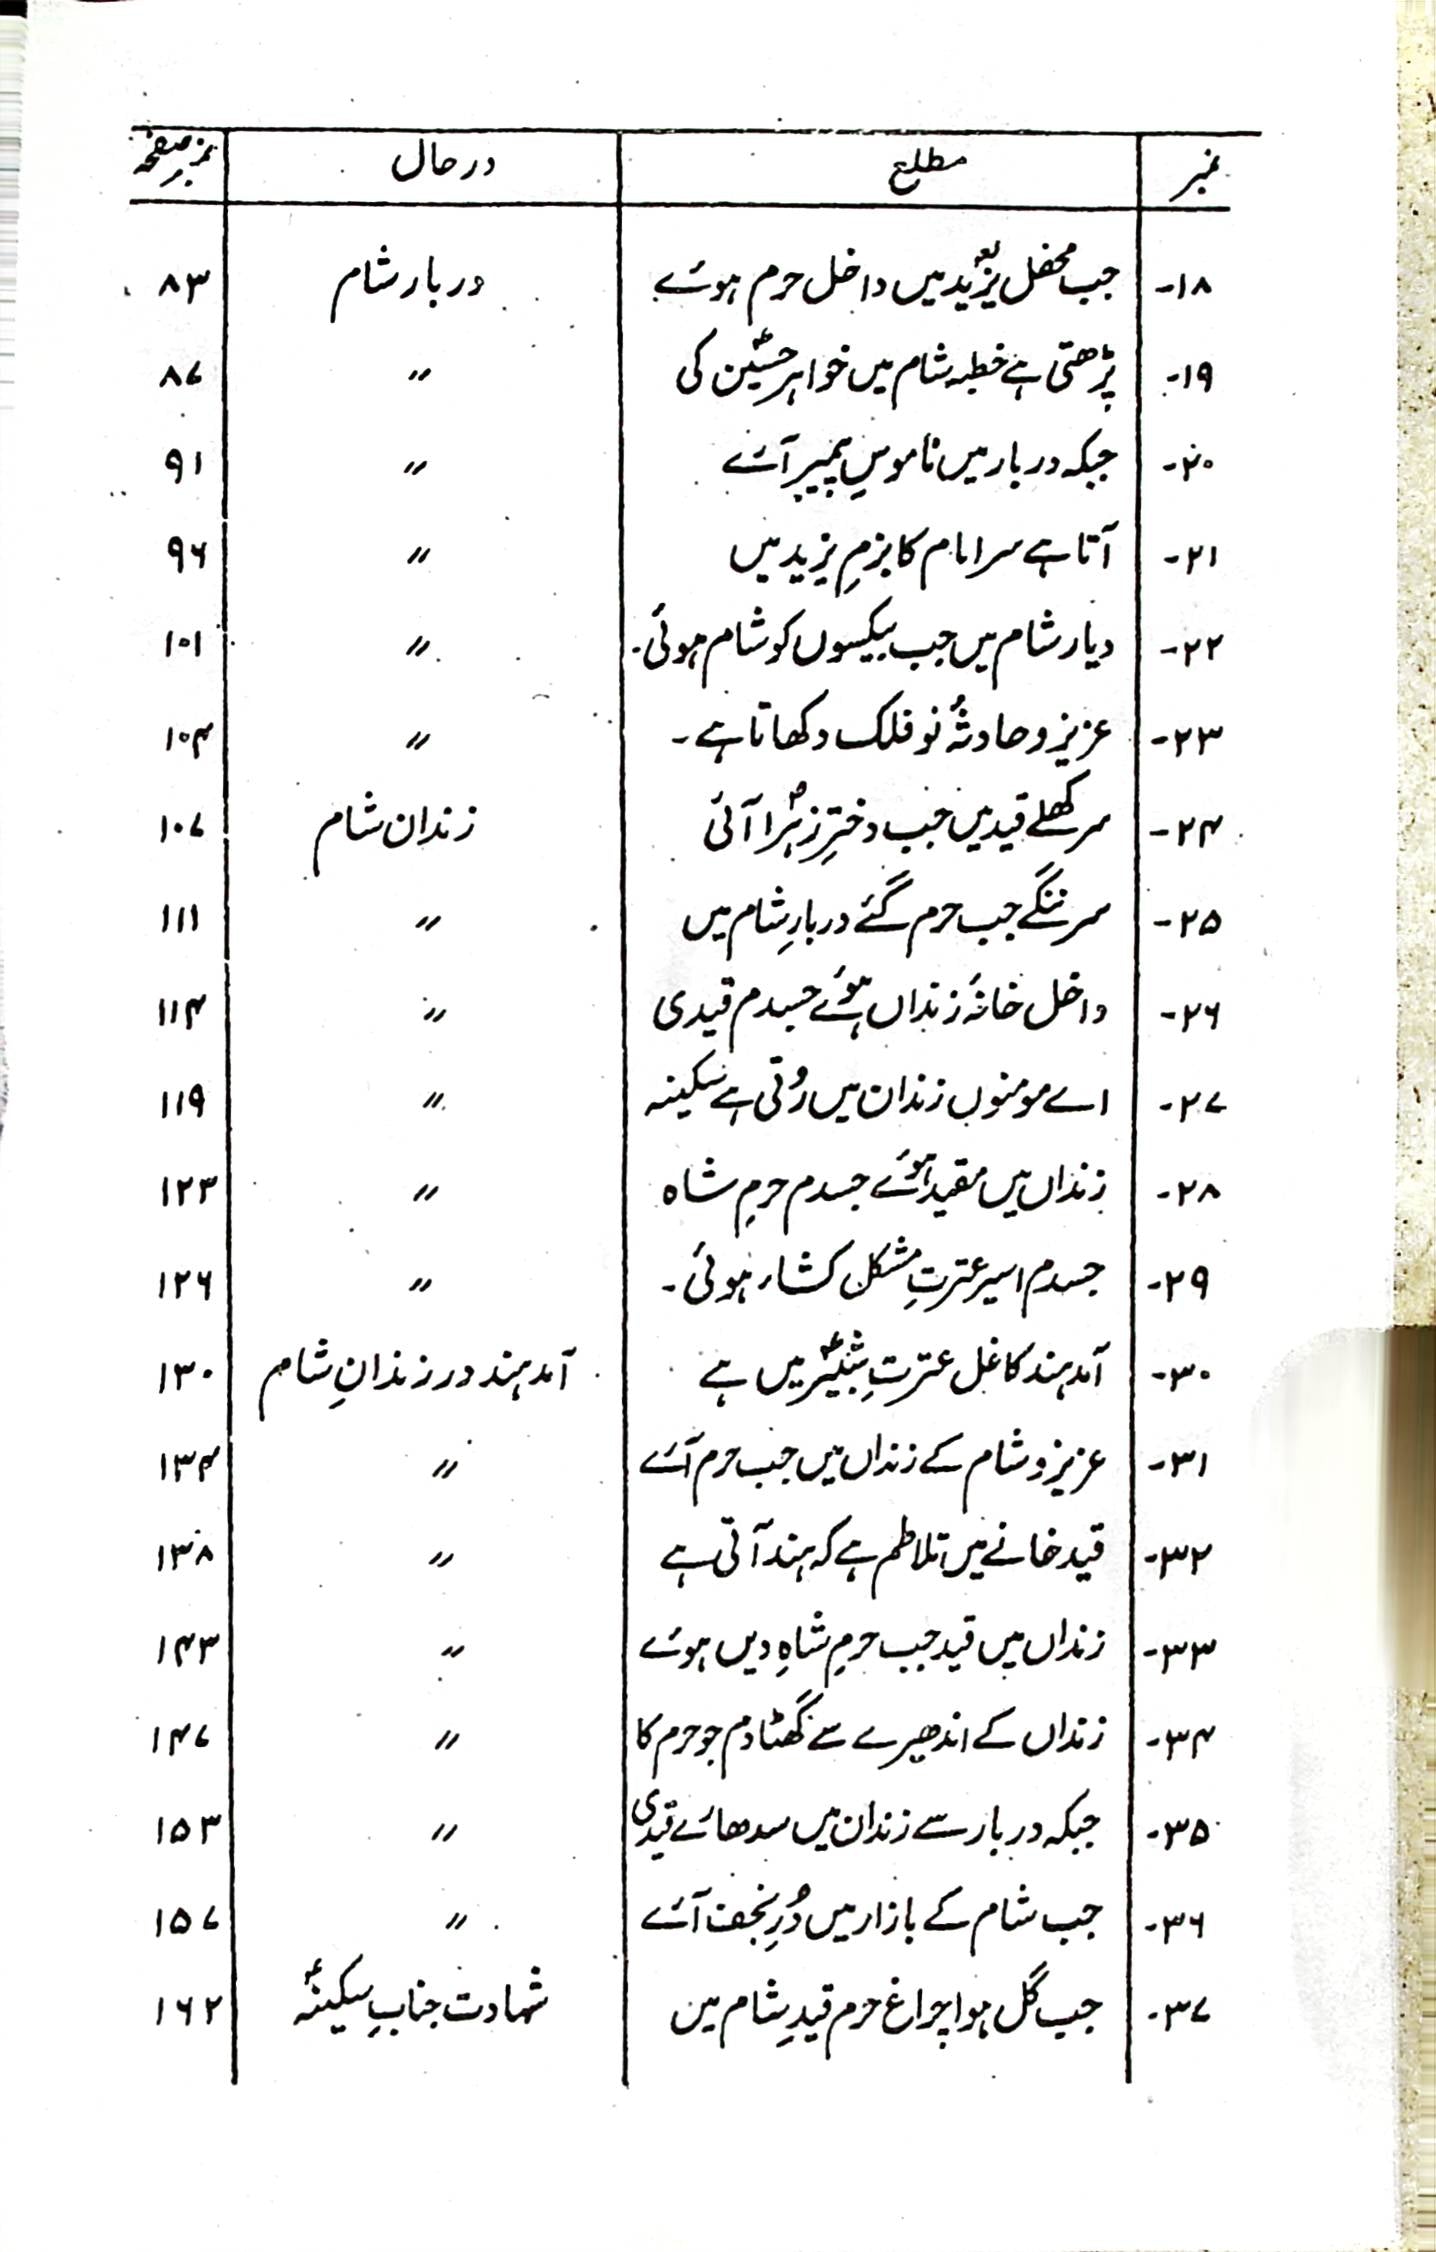 نمبر مطلع در حال نمبر صفحہ
۱۸- جب محفل یزید میں داخل حرم ہوئے دربار شام ۸۳
۱۹- پڑھتی ہے خطبہ شام میں خواہر حسینؑ کی 〃 ۸۷
۲۰- جبکہ دربار میں ناموسِ پیمبر آئے 〃 ۹۱
۲۱- آتا ہے سر امام کا بزمِ یزید میں 〃 ۹۶
۲۲- دیار شام میں جب بیکسوں کو شام ہوئی۔ 〃 ۱۰۱
۲۳- عزیزو حادثۂ نو فلک دکھاتا ہے۔ 〃 ۱۰۴
۲۴- سر کھلے قید میں جب دخترِ زہراؑ آئی زندان شام ۱۰۷
۲۵- سر ننگے جب حرم گئے دربارِ شام میں 〃 ۱۱۱
۲۶- داخل خانۂ زنداں ہوئے جسدم قیدی 〃 ۱۱۴
۲۷- اے مومنوں زندان میں روتی ہے سکینہ 〃 ۱۱۹
۲۸- زنداں میں مقید ہوئے جسدم حرمِ شاہ 〃 ۱۲۳
۲۹- جسدم اسیر عترتِ مشکل کشاء ہوئی۔ 〃 ۱۲۶
۳۰- آمد ہند کا غل عترتِ شبیرؑ میں ہے آمد ہند در زندانِ شام ۱۳۰
۳۱- عزیزو شام کے زنداں میں جب حرم آئے 〃 ۱۳۴
۳۲- قید خانے میں تلاطم ہے کہ ہند آتی ہے 〃 ۱۳۸
۳۳- زنداں میں قید جب حرمِ شاہِ دیں ہوئے 〃 ۱۴۳
۳۴- زنداں کے اندھیرے سے گھٹا دم جو حرم کا 〃 ۱۴۷
۳۵- جبکہ دربار سے زندان میں سدھائے قیدی 〃 ۱۵۳
۳۶- جب شام کے بازار میں دُرِ نجف آئے 〃 ۱۵۷
۳۷- جب گل ہوا چراغ حرم قیدِ شام میں شہادت جنابِ سکینہؑ ۱۶۲